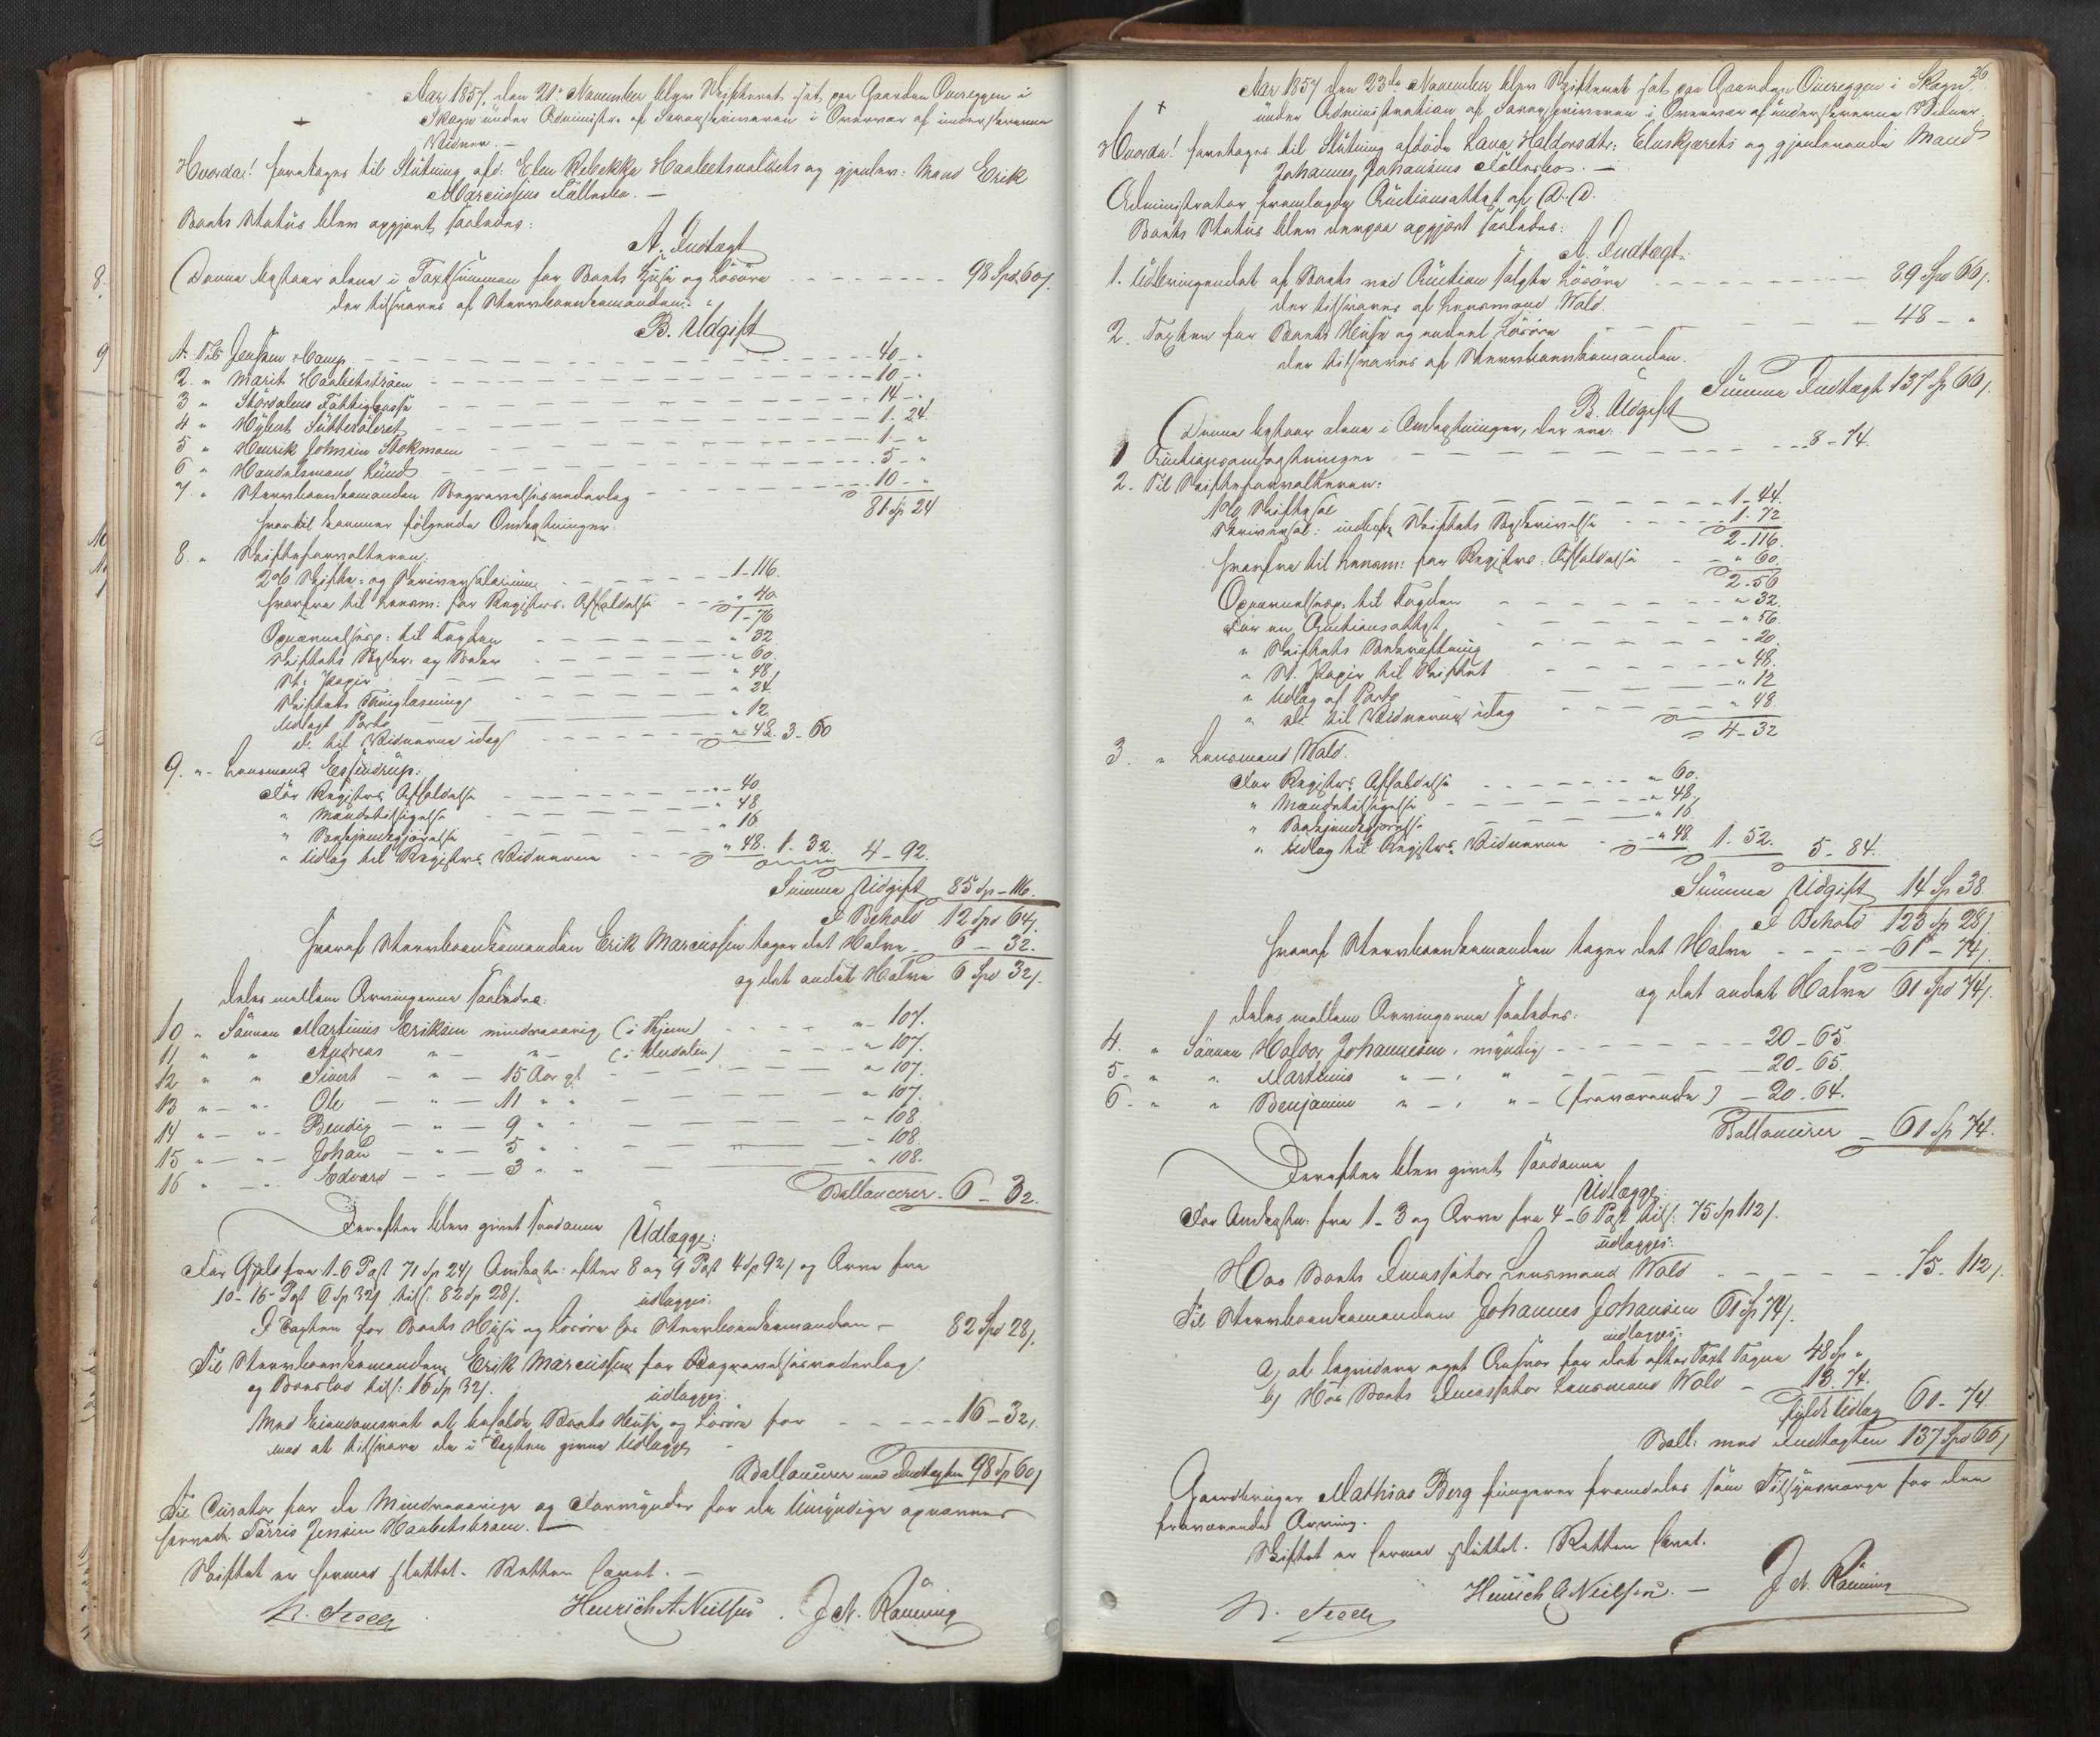 Aar 1857, den 21de November blev Skifteret sat paa Gaarden Overeggen i
Skogn under Administr. af Sorenskriveren i Overvær af underskrevne
Vidner. —
Hvorda! foretages til Slutning afd: Elen Rebekka Haabets og gjenlev: Mand Erik
Marcussens Fællesbo. —
Boets Status blev opgjort saaledes:
A. Indtægt
Denne bestaar alene i Taxtsummen for Boets Huse og Løsøre — 98 Spd 60 s.
der tilsvares af Stervboenkemanden.
B. Udgift
1. Til Jenssen & Comp. — 40 - "
2. " Marit Haabetstrøen — 10 - "
3 " Størdalens Fattigkasse — 14 - "
4 " — 1. 24.
5 " Henrik Johnsen Stokmoen — 1 - "
6 " Handelsmand Lund — 5 - "
7. " Stervboenkemanden Begravelsesvederlag — 10 - "
81 Sp 24
hvortil kommer følgende Omkostninger:
8. " Skifteforvalteren:
2% Skifte- og Skriversalarium — 1-116.
herfra til Lensm: for Registr. Afholdelse — " 40
1-76
Opnævnelsesp: til Fogden — " 32
Skiftets Beskr: og — " 60.
St: Papir — " 48
Skiftets Thinglæsning — " 24.
Udlagt Porto — " 12.
do. til Vidnerne idag — " 48. 3-60
9. " Lensmand Essendrup:
For Registr. Afholdelse — " 40
" Mændstilsigelse — " 48
" Bekjendtgjørelse — " 16
" Udlæg til Registr. Vidnerne — " 48. 1. 32. 4-92.
Summa Udgift 85 Sp - 116.
I Behold 12 Spd 64 s.
hvoraf Stervboenkemanden Erik Marcussen tager det Halve — 6 - 32.
og det andet Halve 6 Spd 32 s.
deles mellem Arvingerne saaledes:
10 " Sønnen Martinus Eriksen mindreaarig (i Hjem) — " 107.
11 " " Andreas " — " — (i Uredalen) — " 107.
12 " " Sivert — " — 15 Aar gl. — " 107.
13 " " Ole — " — 11 " " — " 107.
14 " " Bendig — " — 9 " " — " 108.
15 " " Johan — " — 5 " " — " 108.
16 " " Edvard — " — 3 " " — " 108.
Ballancerer - 6 - 32.
Derefter blev givet saadanne Udlægge:
For Gjeld fra 1-6 Post 71 Sp 24 s Omkostn: efter 8 og 9 Post 4 Sp 92 s og Arv fra
10-16 Post 6 Sp 32 s tils: 82 Sp 28 s.
udlægges:
I Taxten for Boets Huse og Løsøre hos Stervboenkemanden — 82 Spd 28 s.
Til Stervboenkemanden Erik Marcussen for Begravelsesvederlag
og Boeslod tils: 16 Sp 32 s.
udlægges:
Med Eiendomsret at beholde Boets Huse og Løsøre for — 16 - 32 s.
mod at tilsvare de i Taxten givne Udlægge
Ballancerer med Indtægten 98 Sp 60 s
Til Curator for de Mindreaarige og Formynder for de Umyndige opnævnes
herved Tørris Jensen Haabetstrøen. —
Skiftet er hermed sluttet. Retten hævet. —
Henrich A. Neilsen. J. N. Rønning
26
Aar 1857 den 23de November blev Skifteret sat paa Gaarden Overeggen i Skogn
under Administration af Sorenskriveren i Overvær af underskrevne Vidner
Hvorda! foretages til Slutning afdøde Lava Haldorsdtr: Eluskjærets og gjenlevende Mand
Johannes Johansens Fællesbo. —
Administrator fremlagde Auctionsattest af D. D.
Boets Status blev derpaa opgjort saaledes:
A. Indtægt.
1. Udbringendet af Boets ved Auction solgte Løsøre — 89 Spd 66 s.
der tilsvares af Lensmand Wold.
2. Taxten for Boets Huse og andet Løsøre — 48 - "
der tilsvares af Stervboenkemanden.
Summa Indtægt 137 Sp 66 s.
B. Udgift
Denne bestaar alene i Omkostninger, der ere:
1 Auctionsomkostninger — 8 - 74.
2. Til Skifteforvalteren:
1% Skiftesal — 1-44.
Skriversal: indbef. Skiftets Beskrivelse — 1. 72
2-116.
herfra til Lensm: for Registr. Afholdelse — " 60.
2-56
Opnævnelsesp. til Fogden — " 32.
For en Auctionsattest — " 56.
" Skiftets Bekræftning — " 20.
" St. Papir til Skiftet — " 48.
" Udlæg af Porto — " 12
" do. til Vidnerne idag — " 48.
4-32
3. " Lensmand Wold.
For Registr. Afholdelse — " 60.
" Mændstilsigelse — " 48.
" Bekjendtgjørelse — " 16
" Udlæg til Registr. Vidnerne — " 48. 1. 52. 5-84.
Summa Udgift 14 Sp 38.
I Behold 123 Sp 28 s.
hvoraf Stervboenkemanden tager det Halve — 61 - 74 s.
og det andet Halve 61 Spd 74 s.
deles mellem Arvingerne saaledes:
4. " Sønnen Haldor Johannesen, myndig — 20-65.
5- " " Martinus " — , " — 20-65.
6- " " Benjamin " — , " — (fraværende) — 20-64.
Ballancerer — 61 Sp 74.
Derefter blev givet saadanne
Udlægge:
For Omkostn: fra 1-3 og Arv fra 4-6 Post tils: 75 Sp 112 s.
udlægges:
Hos Boets Incassator Lensmand Wold — 75-112 s.
Til Stervboenkemanden Johannes Johansen 61 Sp 74 s.
udlægges:
a) at liqvidere eget Ansvar for det efter Taxt Tagne 48 Sp "
b) Hos Boets Incassator Lensmand Wold — 13. 74.
fyldt Udlæg 61-74.
Ball: med Indtægten 137 Spd 66 s
Gaardbruger Mathias Berg fungerer fremdeles som Tilsynsværge for den
fraværende Arving.
Skiftet er hermed sluttet. Retten hævet.
Henrich A. Neilsen. — J. N. Rønning